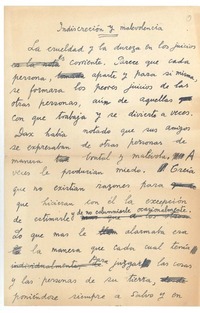 Indiscreción y malevolencia
La crueldad y la dureza en los juicios
es corriente. Parece que cada
persona, aparte y para sí misma,
se formara los peores juicios de las
otras personas, aun de aquellas
con que trabaja y se divierte a veces.
Dax había notado que sus amigos
se expresaban de otras personas de
manera cruel y malévola. A
veces le producían miedo. Creía
que no existían razones para que
hicieran con él la excepción
de criticarle y de no estimarle
Lo que más le alarmaba era
la manera que cada cual tenía
para juzgar las cosas
y las personas de su tierra,
poniéndose siempre a salvo y en